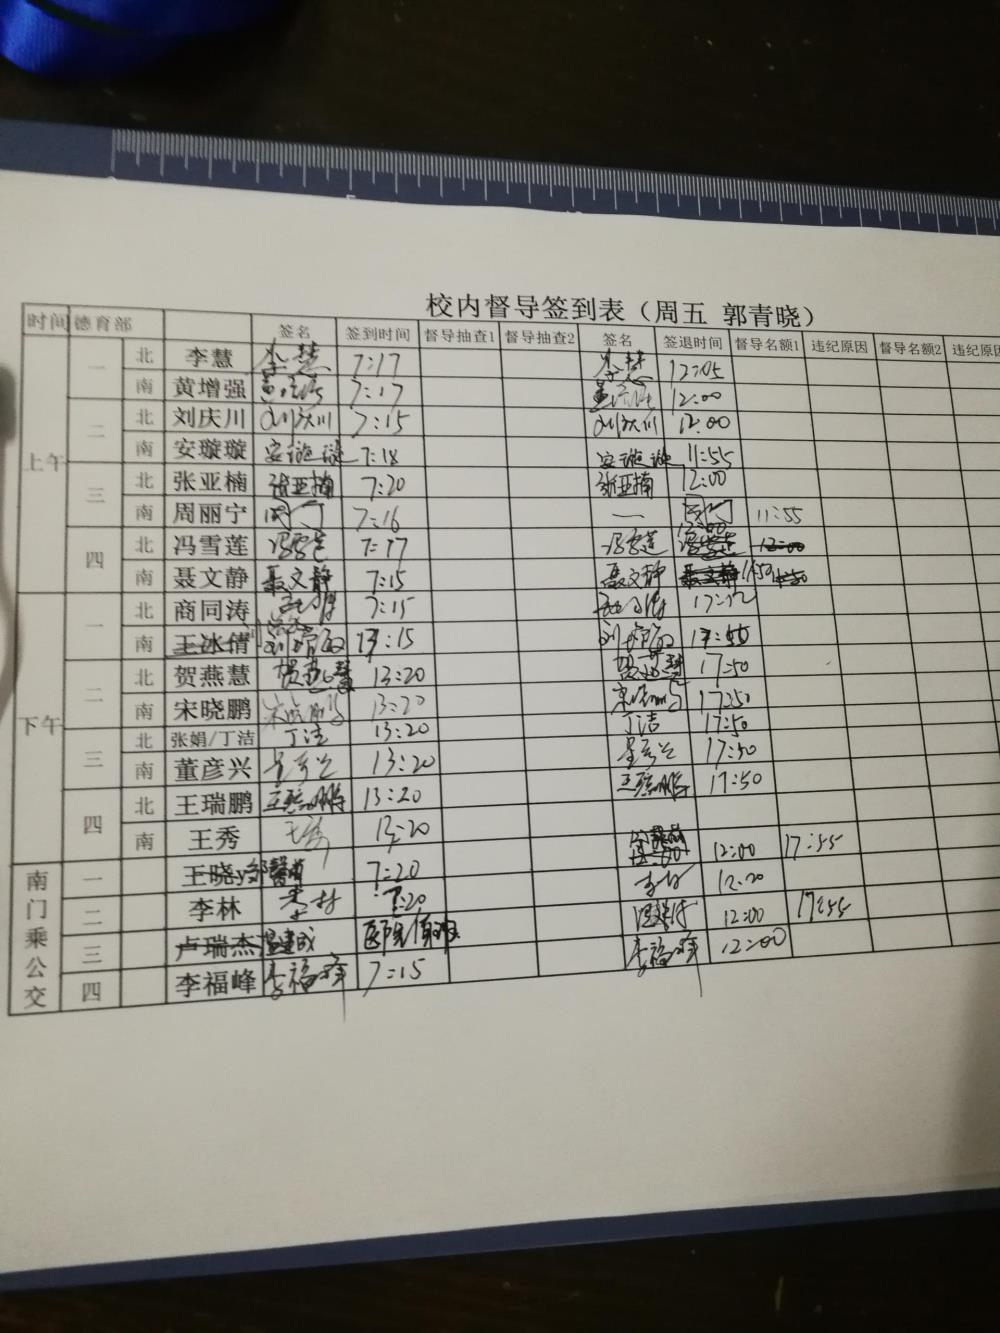 校内督导签到表（周五 郭青晓）
时间 德育部 签名 签到时间 督导抽查1 督导抽查2 签名 签退时间 督导名额1 违纪原因 督导名额2 违纪原因
上午 一 北 李慧 李慧 7:17 李慧 12:05
南 黄增强 7:17 12:00
二 北 刘庆川 刘庆川 7:15 刘庆川 12:00
南 安璇璇 安璇璇 7:18 安璇璇 11:55
三 北 张亚楠 张亚楠 7:20 张亚楠 12:00
南 周丽宁 7:16 — 11:55
四 北 冯雪莲 冯雪莲 7:17 冯雪莲 12:00
南 聂文静 聂文静 7:15 聂文静 聂文静
下午 一 北 商同涛 7:15
南 王冰倩 17:55
二 北 贺燕慧 贺燕慧 13:20 贺燕慧 17:50
南 宋晓鹏 宋晓鹏 13:20 宋晓鹏 17:50
三 北 张娟/丁洁 丁洁 13:20 丁洁 17:50
南 董彦兴 13:20 17:50
四 北 王瑞鹏 王瑞鹏 13:20 王瑞鹏 17:50
南 王秀 王秀 13:20 12:00 17:55
南门乘公交 一 王晓 7:20 12:20
二 李林 李林 7:20 12:00 17:55
三 卢瑞杰 李福峰 12:00
四 李福峰 李福峰 7:15